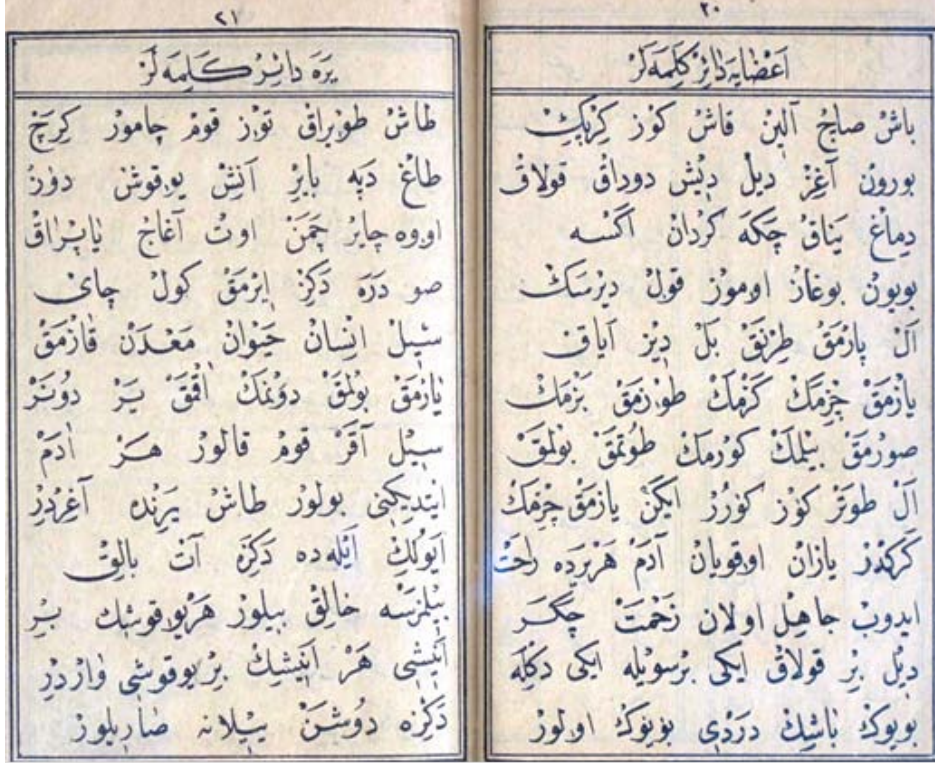 ٢٠
اَعْضَايَه دَائِرْ كَلِمَه لَرْ
باشْ صاچْ آلينْ قاشْ كوزْ كِرْپِيكْ
بورونْ آغِزْ ديلْ ديشْ دوداقْ قولاقْ
دِماغْ يَناقْ چَكَه كَرْدانْ اَكْسه
بويونْ بوغازْ اوموزْ قولْ ديرْسَكْ
اَلْ پارْمَقْ طِرْنَقْ بَلْ ديزْ آياقْ
يازْمَقْ چِزْمَكْ كَزْمَكْ طورْمَقْ بَزْمَكْ
صورْمَقْ بيلْمَكْ كورْمَكْ طوتْمَقْ بولْمَقْ
اَلْ طوتَرْ كوزْ كورُرْ ايكَنْ يازْمَقْ چِزْمَكْ
كَرَكْدِرْ يازانْ اوقويانْ آدَمْ هَرْ يَرْدَه راحَتْ
ايدوبْ جاهِلْ اولانْ زَحْمَتْ چَكَرْ
ديلْ بِرْ قولاقْ ايكى بِرْ سويله ايكى دِكْلَه
بويوكْ باشِكْ دَرْدى بويوكْ اولورْ
٢١
يَرَه دائِرْ كَلِمَه لَرْ
طاشْ طوپراقْ توزْ قومْ چامورْ كِرَجْ
طاغْ دَپه بايِرْ اَنِشْ يوقوشْ دوزْ
اووه چايِرْ چَمَنْ اوتْ آغاجْ ياپْراقْ
صو دَرَه دَكِزْ ايرْمَقْ كولْ چاىْ
سَيلْ اِنْسانْ حَيْوانْ مَعْدَنْ قازْمَقْ
يارْمَقْ بولْمَقْ دونْمَكْ آقْمَقْ يَرْ دونَرْ
سَيلْ آقَرْ قومْ قالورْ هَرْ آدَمْ
ايتديكينى بولورْ طاشْ يَرِنْده آغِرْدِرْ
اَيولِكْ اَيله ده دَكِزَه آتْ بالِقْ
بيلْمَزْسَه خالِقْ بيلورْ هَرْ يوقوشِكْ بِرْ
اَنيشى هَرْ اَنيشِكْ بِرْ يوقوشى وارْدِرْ
دَكِزَه دوشَنْ ييلانه صاريلورْ